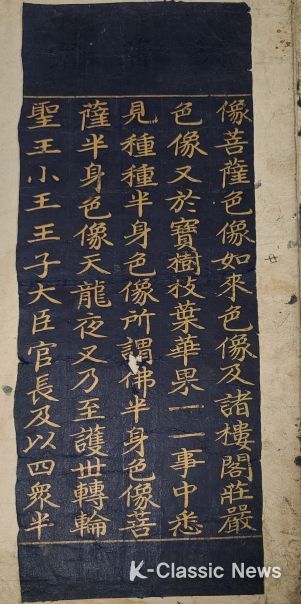 像菩薩色像如來色像及諸樓閣莊嚴
色像又於寶樹枝葉華果一一事中悉
見種種半身色像所謂佛半身色像菩
薩半身色像天龍夜叉乃至護世轉輪
聖王小王王子大臣官長及以四衆半
K-Classic News